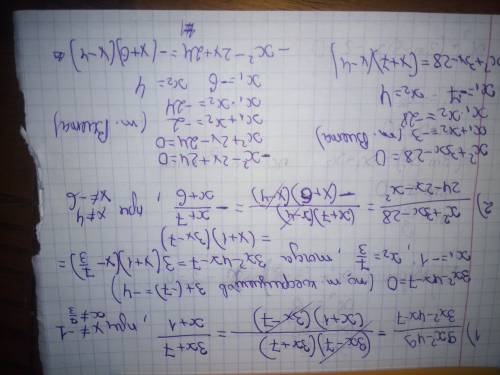 1) (9x²-49)/(3x²-4x-7) = ((3x-7)(3x+7))/((x+1)(3x-7)) = (3x+7)/(x+1), при x≠-1 x≠7/3
3x²-4x-7=0 (по т. коэффициентов 3+(-7)=-4)
x₁=-1, x₂=7/3, тогда 3x²-4x-7=3(x+1)(x-7/3)=
=(x+1)(3x-7)
2) (x²+3x-28)/(24-2x-x²) = ((x+7)(x-4))/(-(x+6)(x-4)) = -(x+7)/(x+6), при x≠4 x≠-6
x²+3x-28=0
x₁+x₂=-3 (т. Виета)
x₁x₂=-28
x₁=-7 x₂=4
x²+3x-28=(x+7)(x-4)
-x²-2x+24=0
x²+2x-24=0
x₁+x₂=-2 (т. Виета)
x₁·x₂=-24
x₁=-6 x₂=4
-x²-2x+24=-(x+6)(x-4)